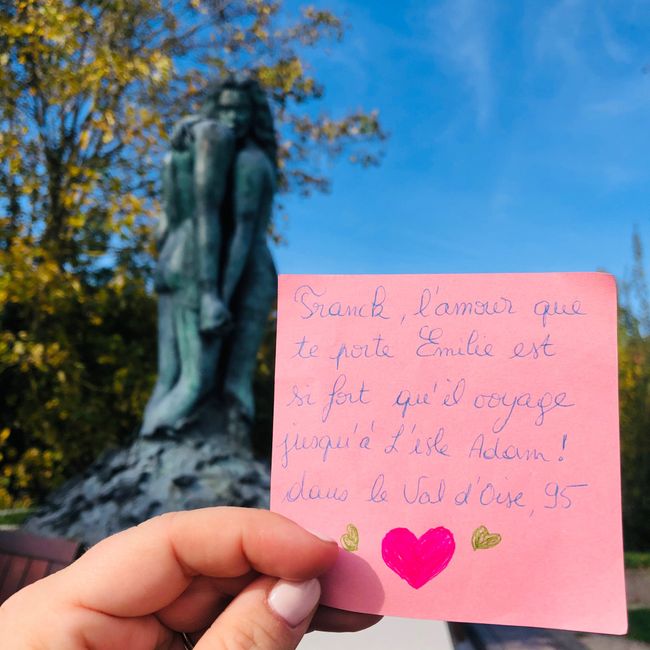 Franck, l'amour que
te porte Emilie est
si fort qu'il voyage
jusqu'à L'isle Adam!
dans le Val d'Oise, 95